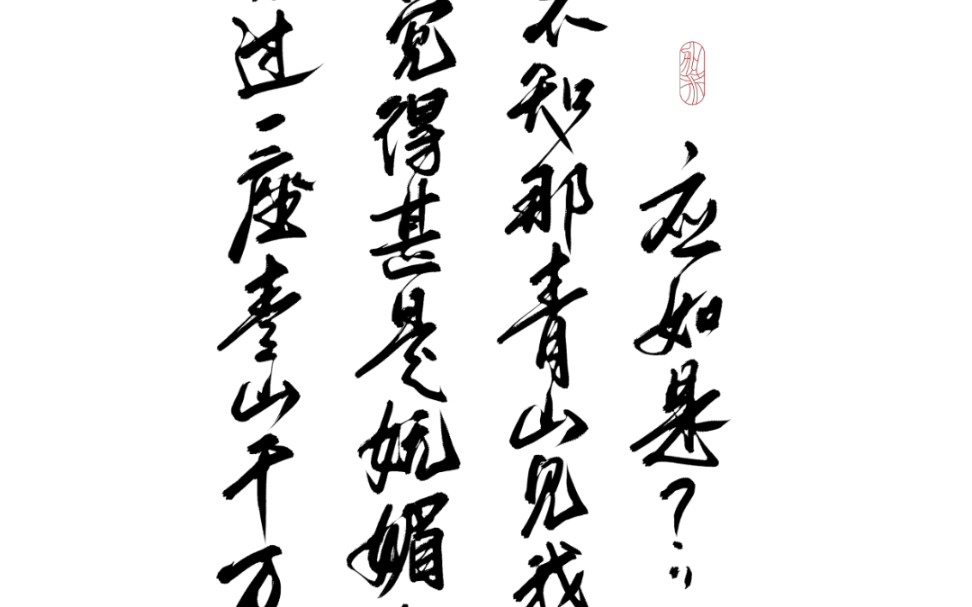 过一座青山千万
觉得甚是妩媚
不知那青山见我
应如是？